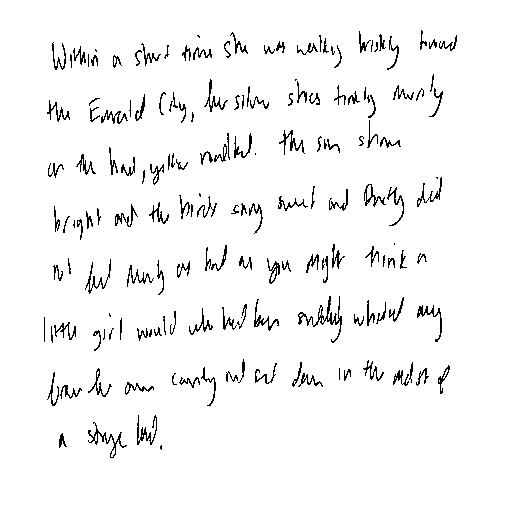 Within a short time she was walking briskly toward
the Emerald City, her silver shoes tinkling merrily
on the hard, yellow roadbed. The sun shone
bright and the birds sang sweet and Dorothy did
not feel nearly as bad as you might think a
little girl would who had been suddenly whisked away
from her own country and set down in the midst of
a strange land.